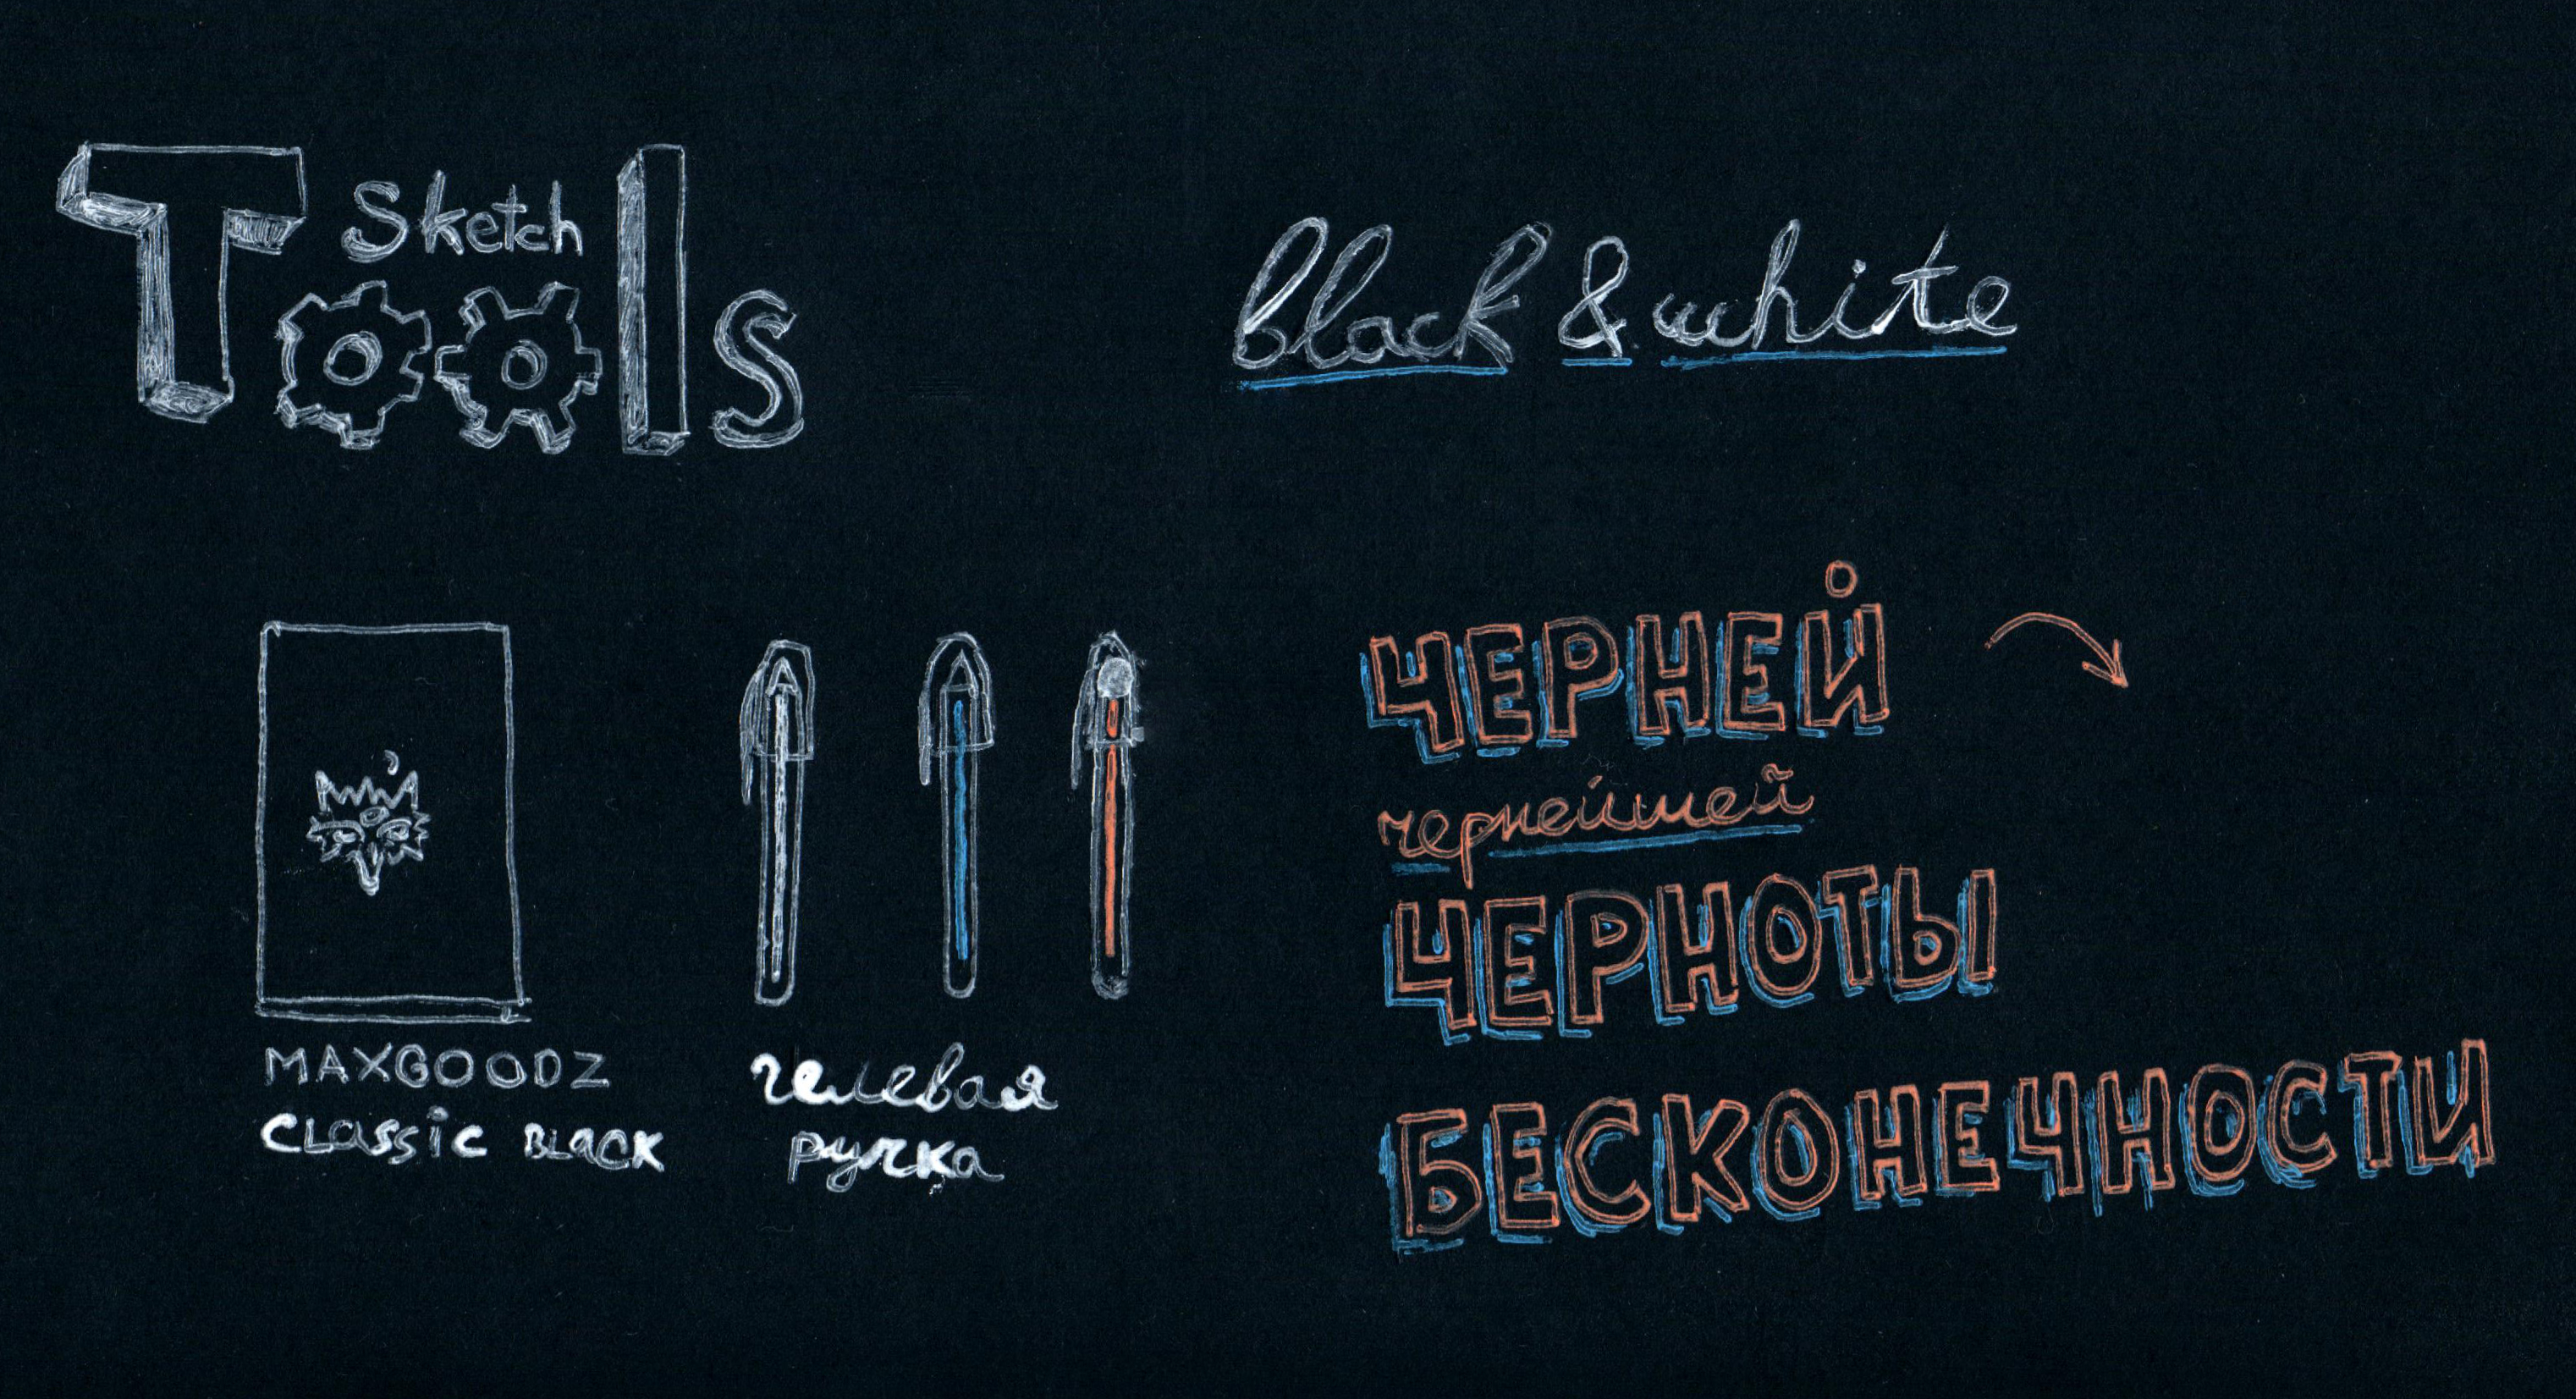 Sketch
Tools
black & white
MAXGOODZ
CLASSIC BLACK
гелевая
ручка
ЧЕРНЕЙ
чернейшей
ЧЕРНОТЫ
БЕСКОНЕЧНОСТИ